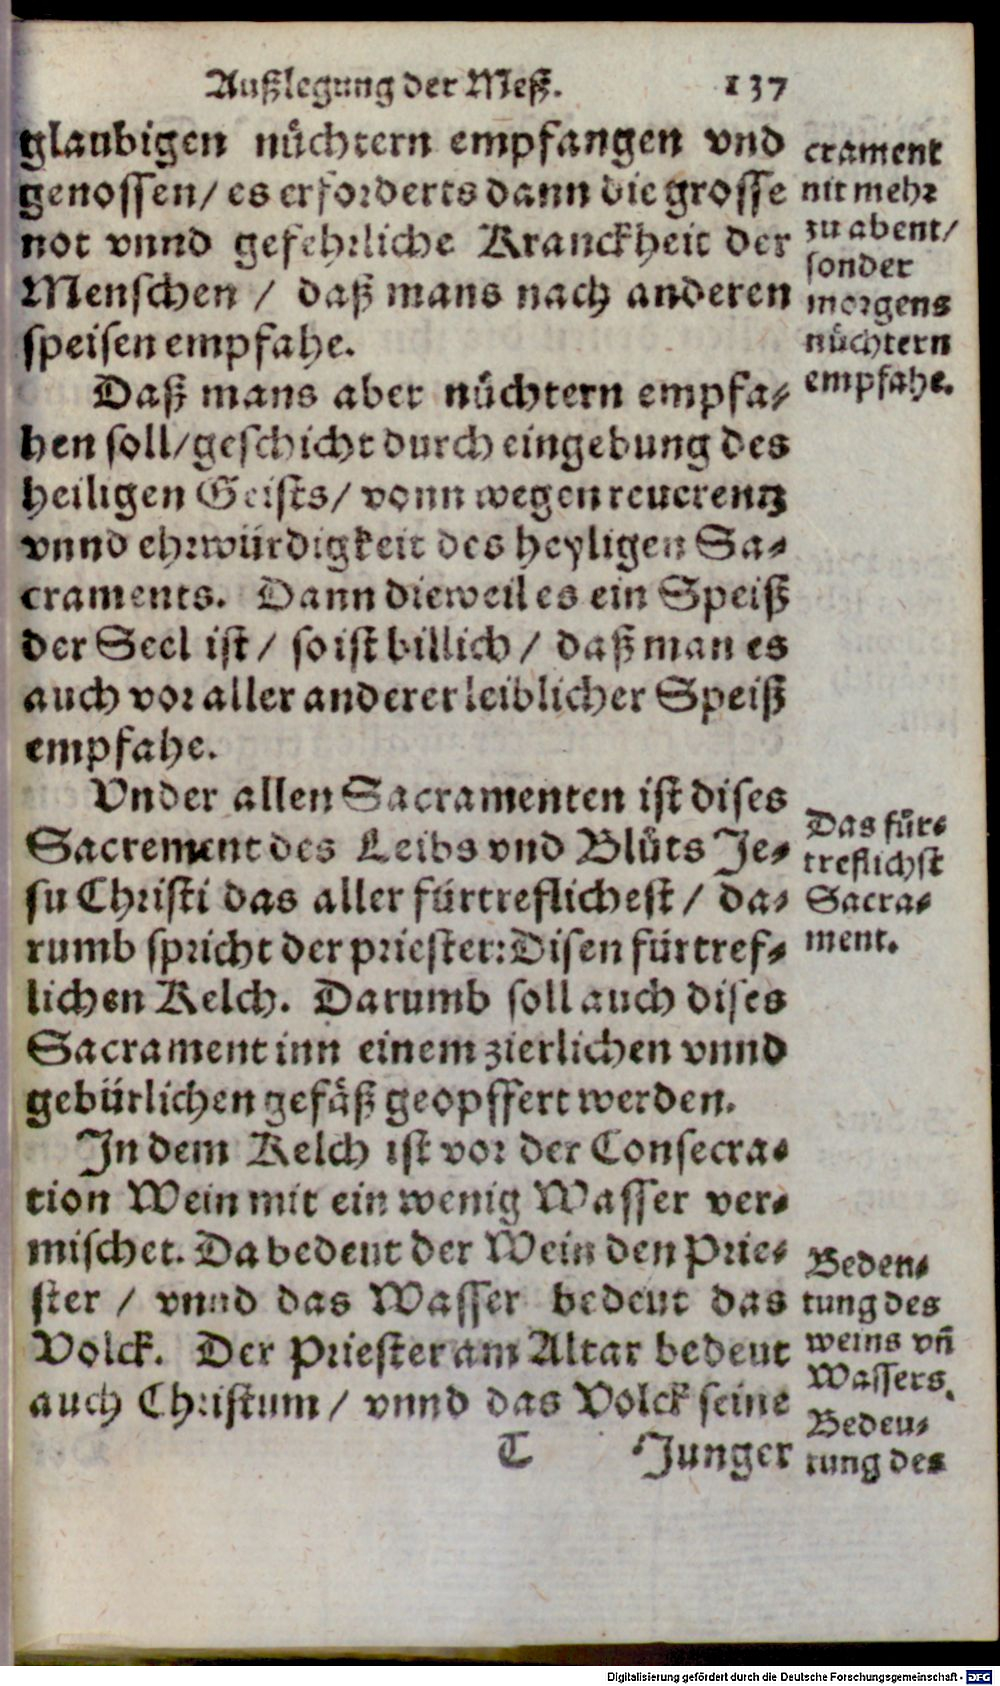 Außlegung der Meß. 137
glaubigen nüchtern empfangen vnd
genossen/ es erforderts dann die grosse
not vnnd gefehrliche Kranckheit der
Menschen / daß mans nach anderen
speisen empfahe.
Daß mans aber nüchtern empfa-
hen soll/ geschicht durch eingebung des
heiligen Geists/ vonn wegen reuerentz
vnnd ehrwürdigkeit des heyligen Sa-
craments. Dann dieweil es ein Speiß
der Seel ist / so ist billich / daß man es
auch vor aller anderer leiblicher Speiß
empfahe.
Vnder allen Sacramenten ist dises
Sacrement des Leibs vnd Blůts Je-
su Christi das aller fürtreflichest / da-
rumb spricht der priester: Disen fürtref-
lichen Kelch. Darumb soll auch dises
Sacrament inn einem zierlichen vnnd
gebürlichen gefäß geopffert werden.
In dem Kelch ist vor der Consecra-
tion Wein mit ein wenig Wasser ver-
mischet. Da bedeut der Wein den Prie-
ster / vnnd das Wasser bedeut das
Volck. Der Priester am Altar bedeut
auch Christum / vnnd das Volck seine
T Junger
crament
nit mehr
zu abent/
sonder
morgens
nüchtern
empfahe.
Das für-
treflichst
Sacra-
ment.
Beden-
tung des
weins vñ
Wassers.
Bedeu-
tung des
Digitalisierung gefördert durch die Deutsche Forschungsgemeinschaft - DFG